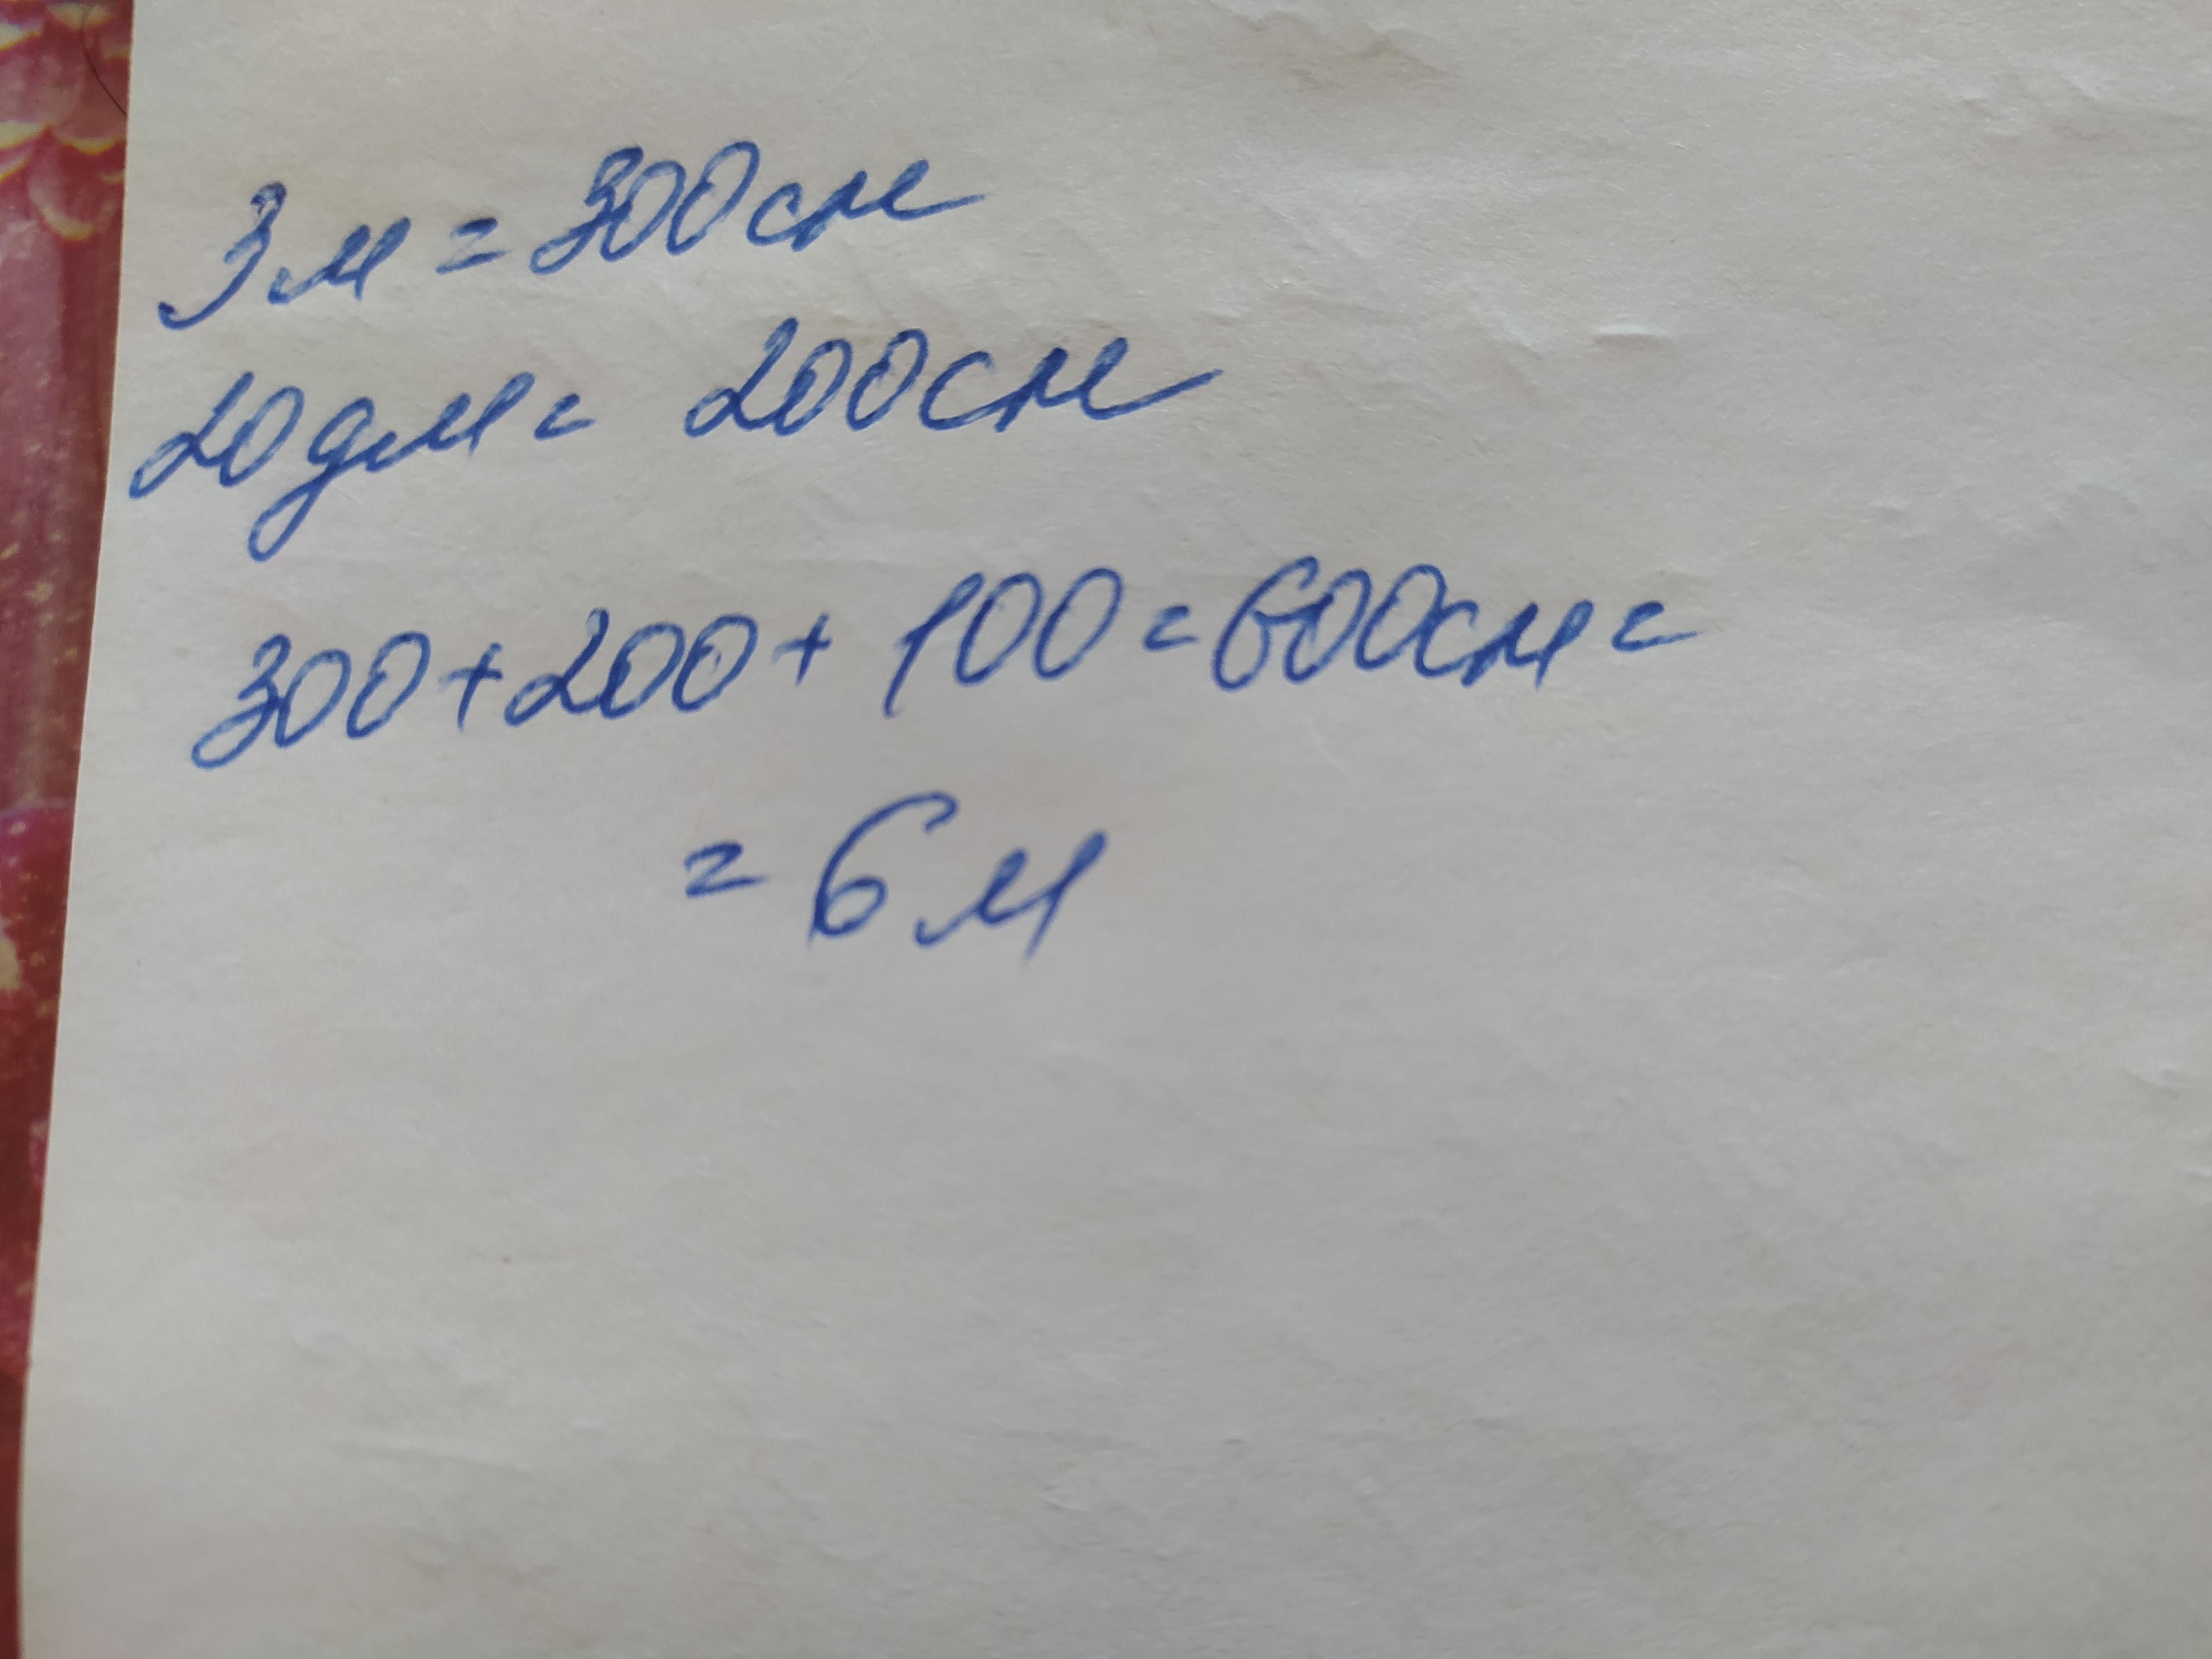 3м = 300см
20дм = 200см
300+200+100=600см=
= 6м